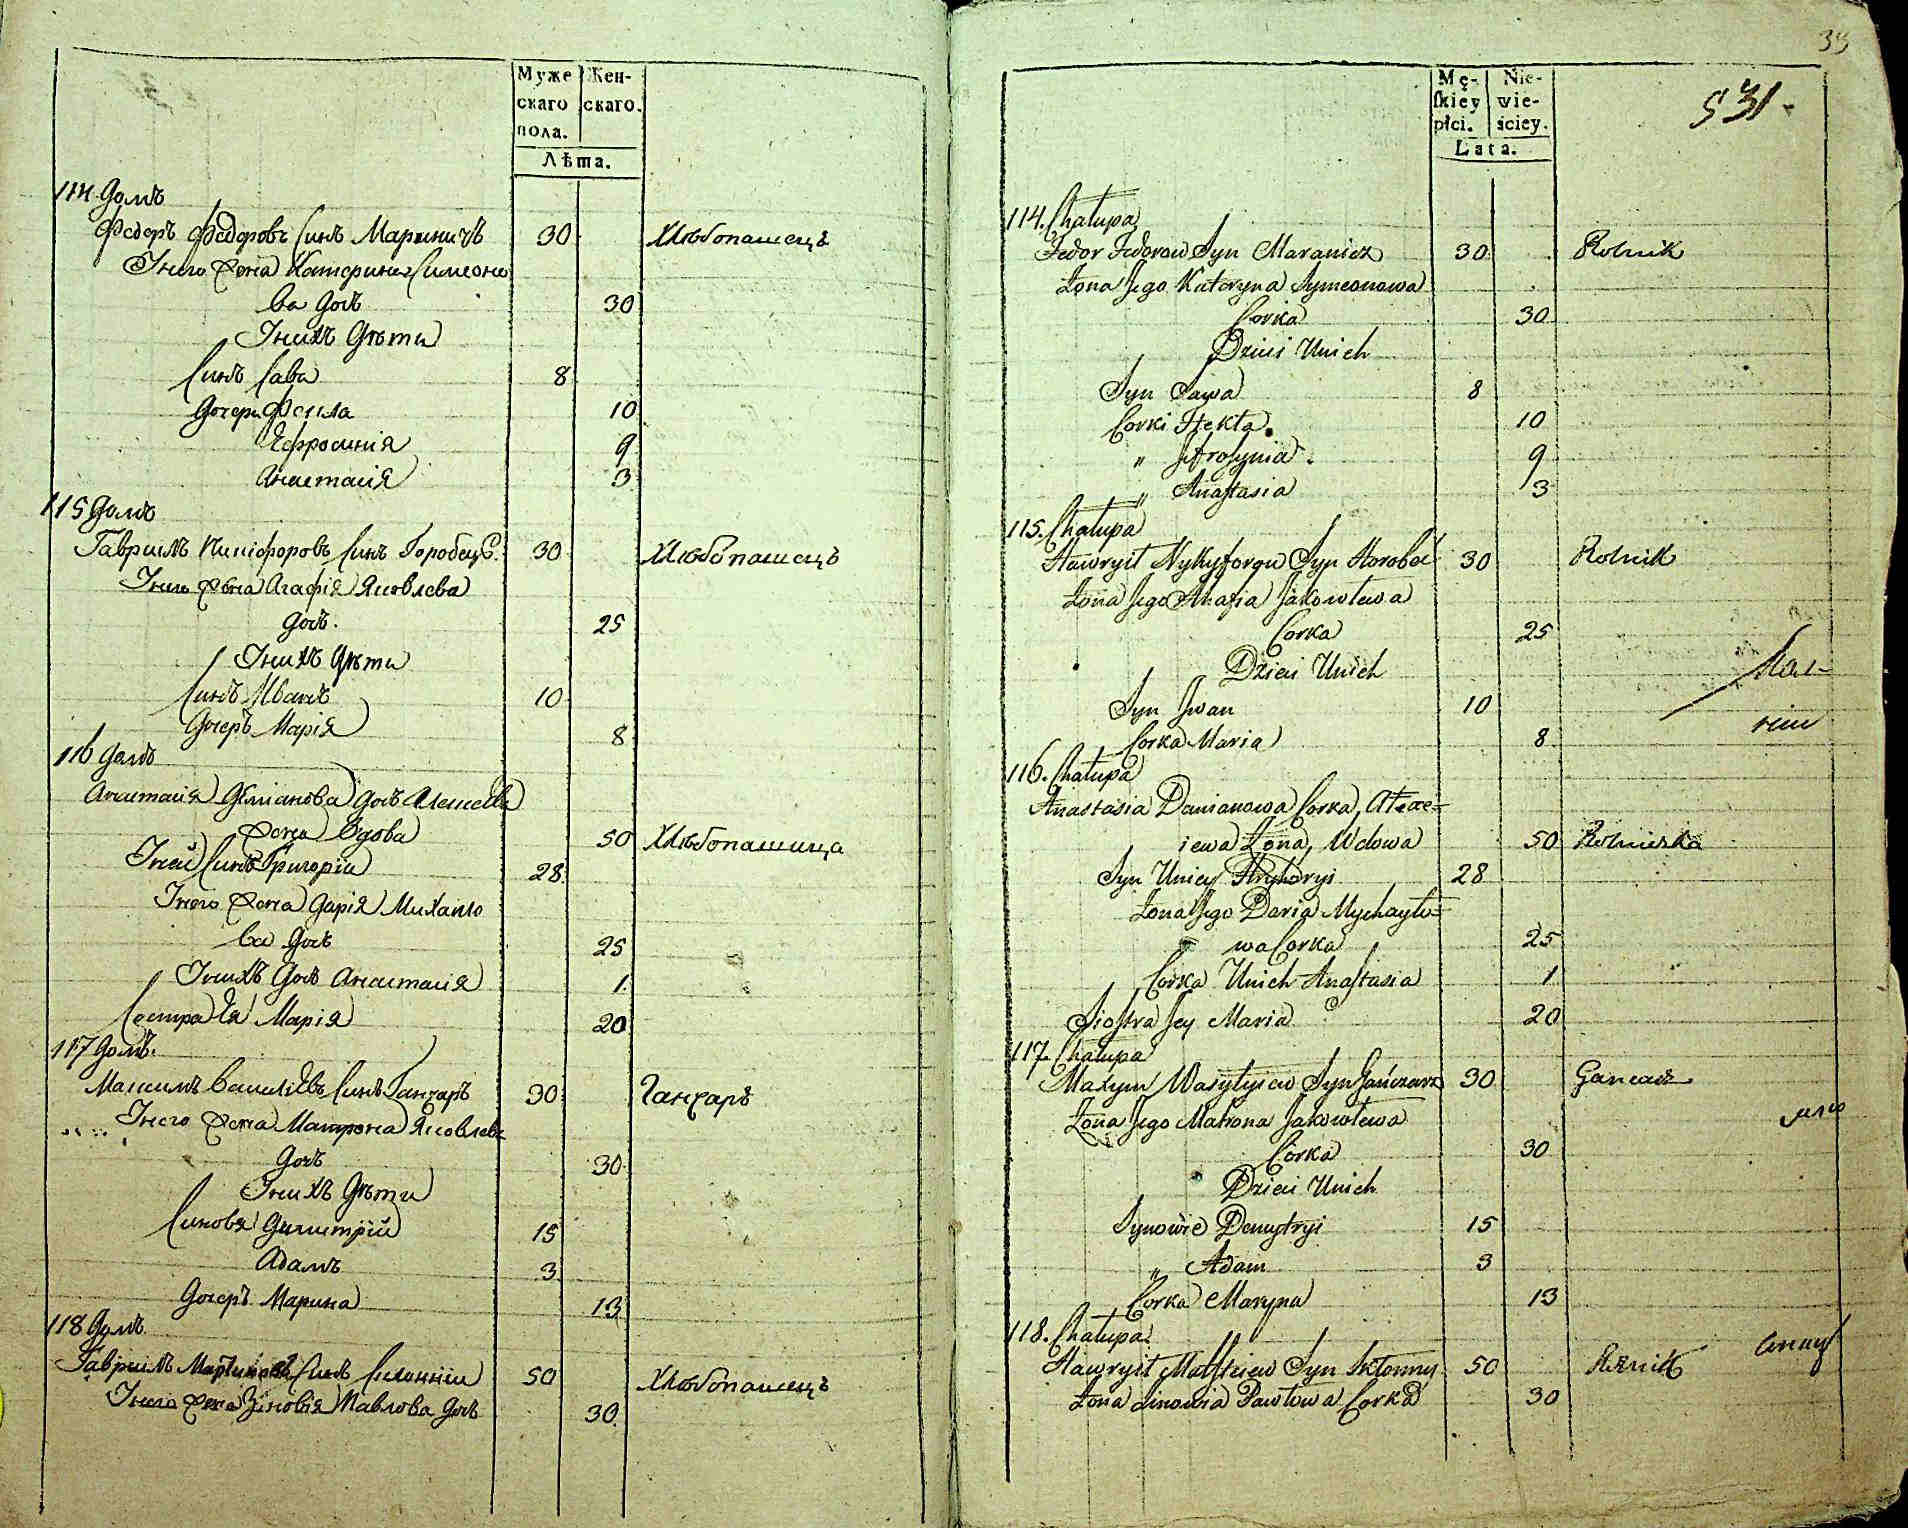 Муже Жен-
скаго скаго.
пола.
Лѣта.
114 Домъ
Федоръ Федоровъ Синъ Мараничъ 30 Хлѣбопашецъ
Інего Жена Катерина Симеоно
ва Дочь 30
Інихъ Дѣти
Синъ Сава 8
Дочери Фекла 10
Ефросинія 9
Анастасія 3
115 Домъ
Гавриилъ Никифоровъ Синъ Горобецъ 30 Хлѣбопашецъ
Інего Жена Агафія Яковлева
Дочь. 25
Інихъ Дѣти
Синъ Иванъ 10
Дочеръ Марія 8
116 Домъ
Анастасія Даміанова Дочь Алексѣева
Жена Вдова 50 Хлѣбопашица
Іней Синъ Григорій 28
Інего Жена Дарія Михайло
ва Дочь 25
Інихъ Дочь Анастасія 1
Сестра Ея Марія 20
117 Домъ.
Максимъ Василіевъ Синъ Ганчаръ 30 Ганчаръ
Інего Жена Матрона Яковлева
Дочь 30
Інихъ Дѣти
Синовя Димитрій 15
Адамъ 3
Дочеръ Марина 13
118 Домъ
Гавриилъ Синъ 50 Хлѣбопашецъ
Інего Жена Зіновія Павлова Дочь 30
33
Mę- Nie-
ſkiey wie-
płci. ściey.
Lata.
531
114. Chałupa
Fedor Fedorow Syn Maranicz 30 Rolnik
Żona Jego Kateryna Symeonowa
Corka 30
Dzieci Unich
Syn Sawa 8
Corki Htekta 10
" Jefrosynia 9
" Anastasia 3
115. Chałupa
Hawryił Nykyforow Syn Horobeć 30 Rolnik
Żona Jego Ahafia Jakowlewa
Corka 25
Dzieci Unich
Syn Jwan 10
Corka Maria 8
116. Chałupa
Anastasia Damianowa Corka, Alexe=
iewa Żona, Wdowa 50 Rolniczka
Syn Uniey Hryhoryi 28
Żona Jego Daria Mychayło=
wa Corka 25
Corka Unich Anastasia 1
Siostra Jey Maria 20
117. Chałupa
Maxym Wasylyiew Syn Gańczarz 30 Gancarz
Żona Jego Matrona Jakowlewa
Corka 30
Dzieci Unich
Synowie Demytryi 15
" Adam 3
Corka Maryna 13
118. Chałupa
Hawryił Syn 50 Rolnik
Żona Zinowia Pawłowa Corka 30